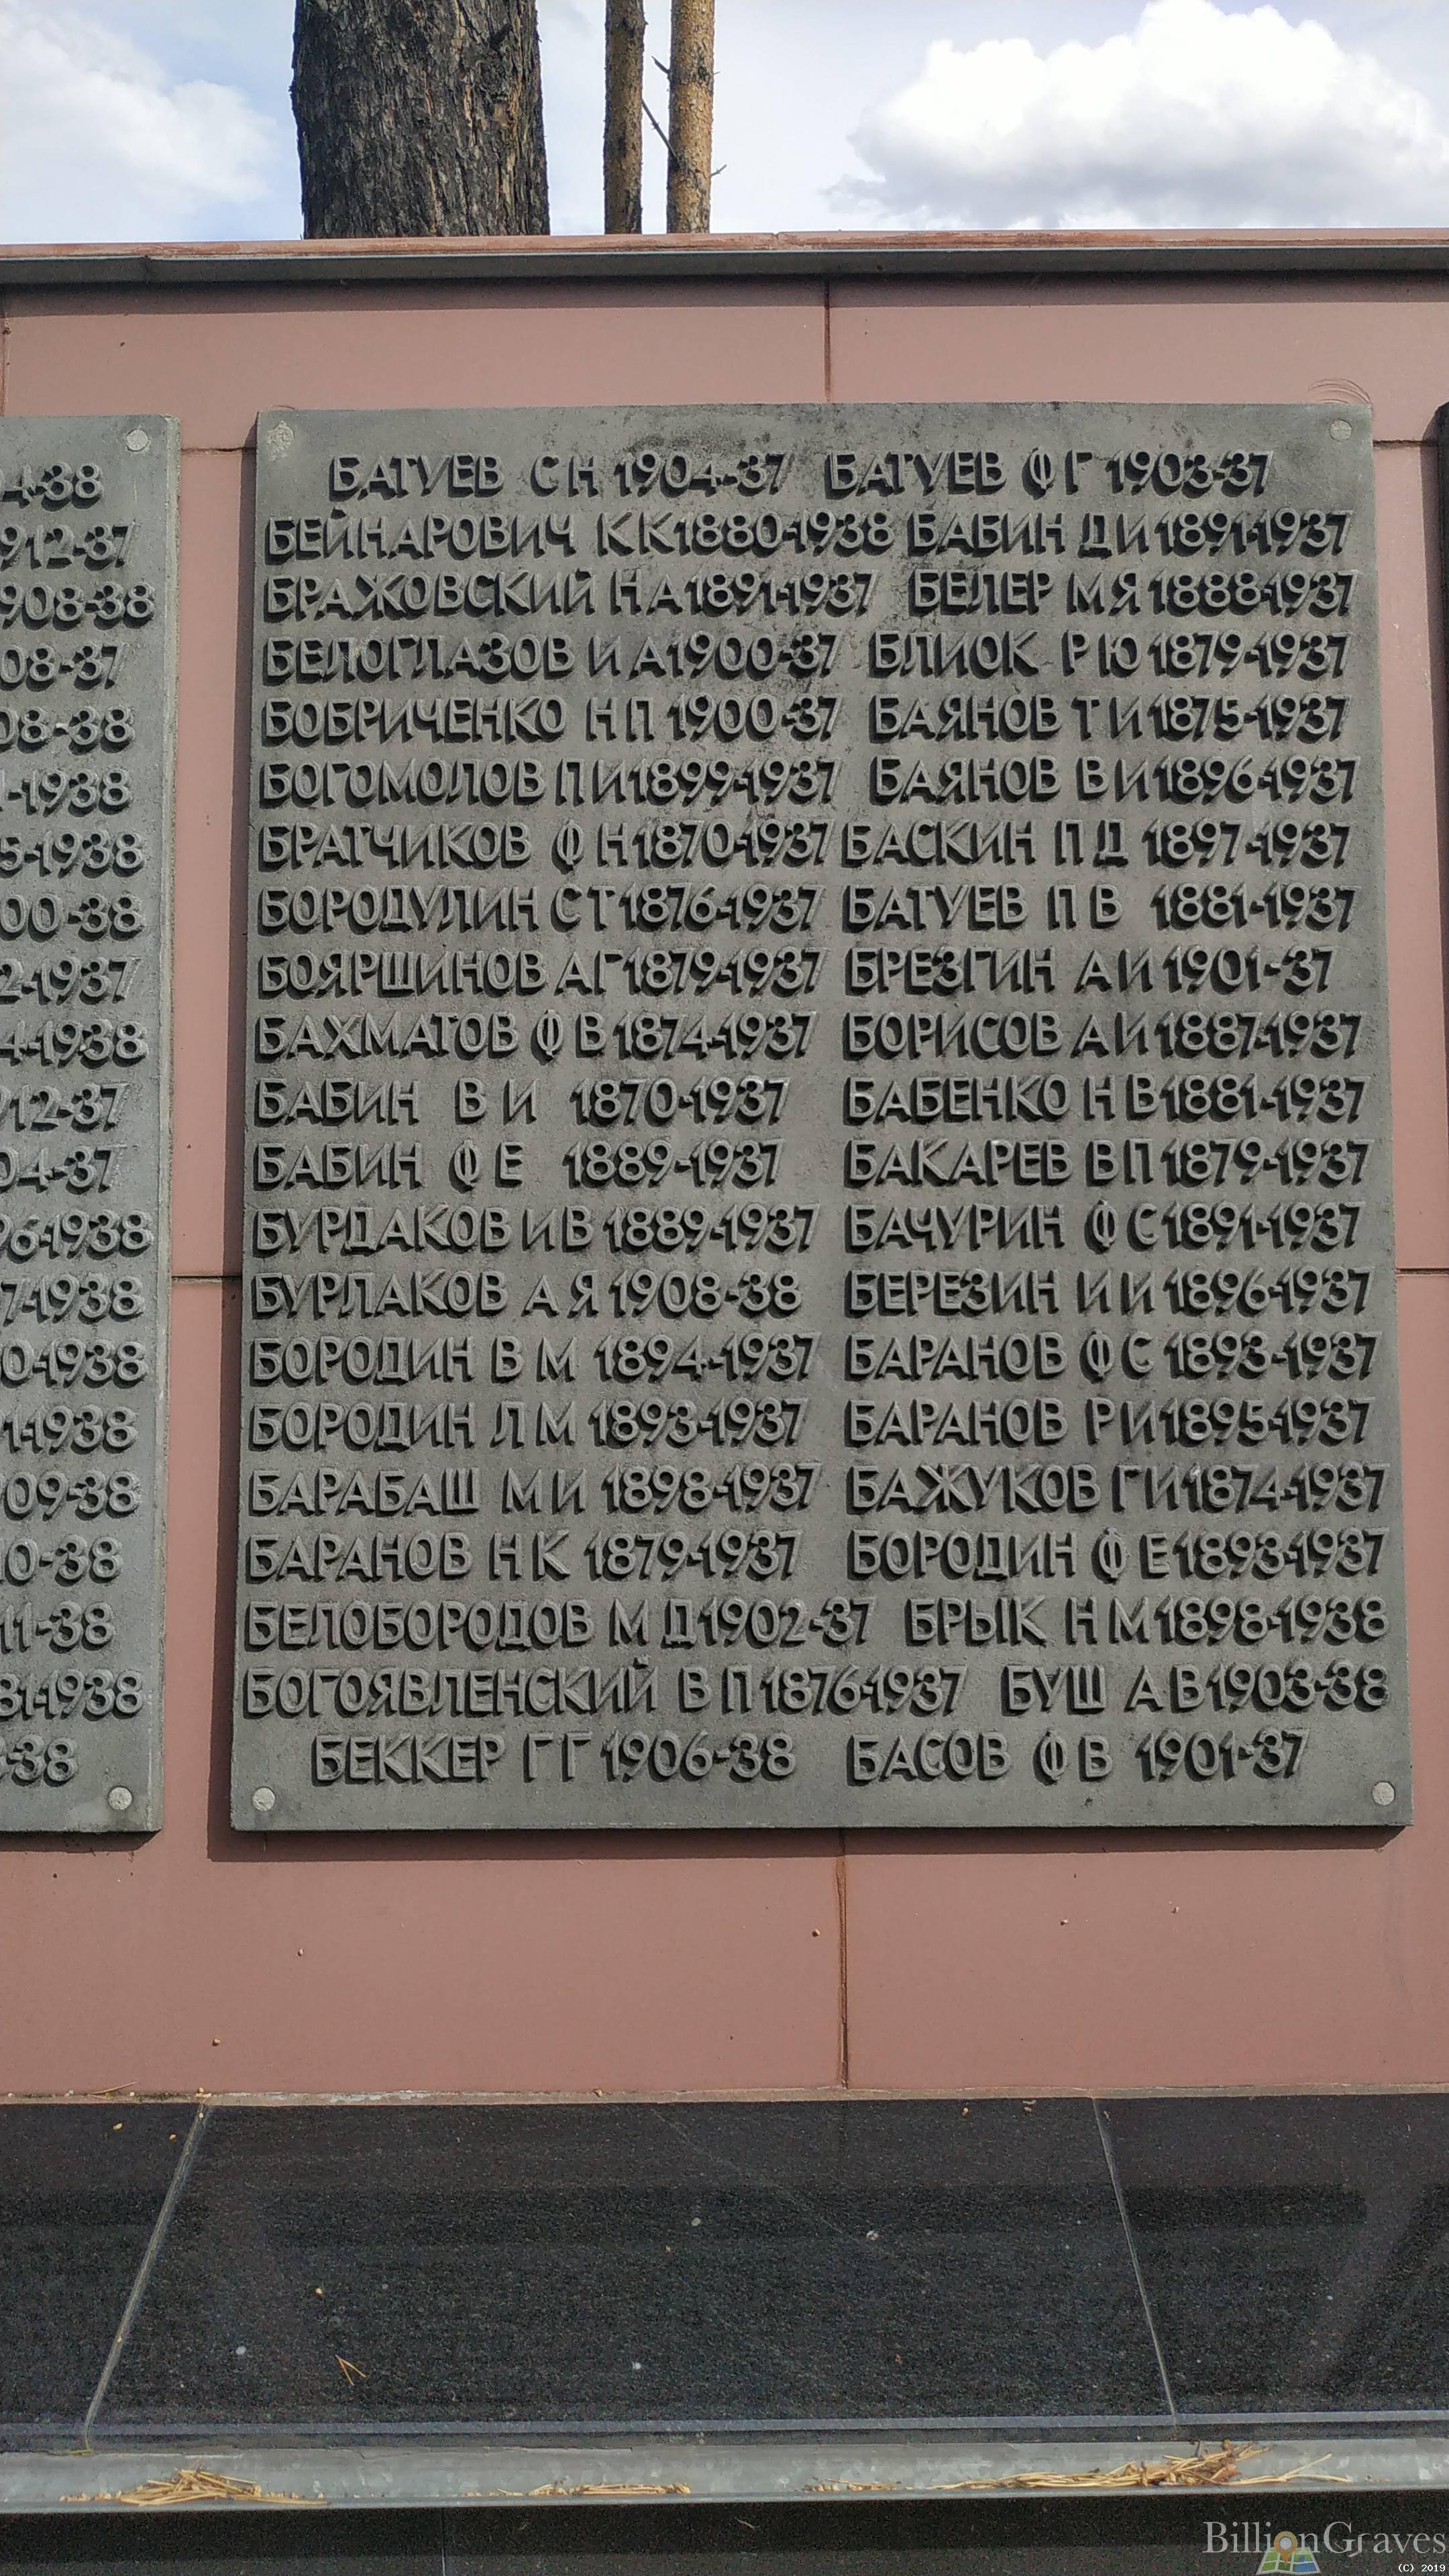 4-38
912-37
908-38
08-37
08-38
-1938
5-1938
00-38
2-1937
4-1938
912-37
04-37
96-1938
7-1938
0-1938
1-1938
09-38
10-38
11-38
81-1938
-38
БАТУЕВ С Н 1904-37 БАТУЕВ Ф Г 1903-37
БЕЙНАРОВИЧ К К 1880-1938 БАБИН Д И 1891-1937
БРАЖОВСКИЙ Н А 1891-1937 БЕЛЕР М Я 1888-1937
БЕЛОГЛАЗОВ И А 1900-37 БЛИОК Р Ю 1879-1937
БОБРИЧЕНКО Н П 1900-37 БАЯНОВ Т И 1875-1937
БОГОМОЛОВ П И 1899-1937 БАЯНОВ В И 1896-1937
БРАТЧИКОВ Ф Н 1870-1937 БАСКИН П Д 1897-1937
БОРОДУЛИН С Т 1876-1937 БАТУЕВ П В 1881-1937
БОЯРШИНОВ А Г 1879-1937 БРЕЗГИН А И 1901-37
БАХМАТОВ Ф В 1874-1937 БОРИСОВ А И 1887-1937
БАБИН В И 1870-1937 БАБЕНКО Н В 1881-1937
БАБИН Ф Е 1889-1937 БАКАРЕВ В П 1879-1937
БУРДАКОВ И В 1889-1937 БАЧУРИН Ф С 1891-1937
БУРЛАКОВ А Я 1908-38 БЕРЕЗИН И И 1896-1937
БОРОДИН В М 1894-1937 БАРАНОВ Ф С 1893-1937
БОРОДИН Л М 1893-1937 БАРАНОВ Р И 1895-1937
БАРАБАШ М И 1898-1937 БАЖУКОВ Г И 1874-1937
БАРАНОВ Н К 1879-1937 БОРОДИН Ф Е 1893-1937
БЕЛОБОРОДОВ М Д 1902-37 БРЫК Н М 1898-1938
БОГОЯВЛЕНСКИЙ В П 1876-1937 БУШ А В 1903-38
БЕККЕР Г Г 1906-38 БАСОВ Ф В 1901-37
BillionGraves
(C) 2019